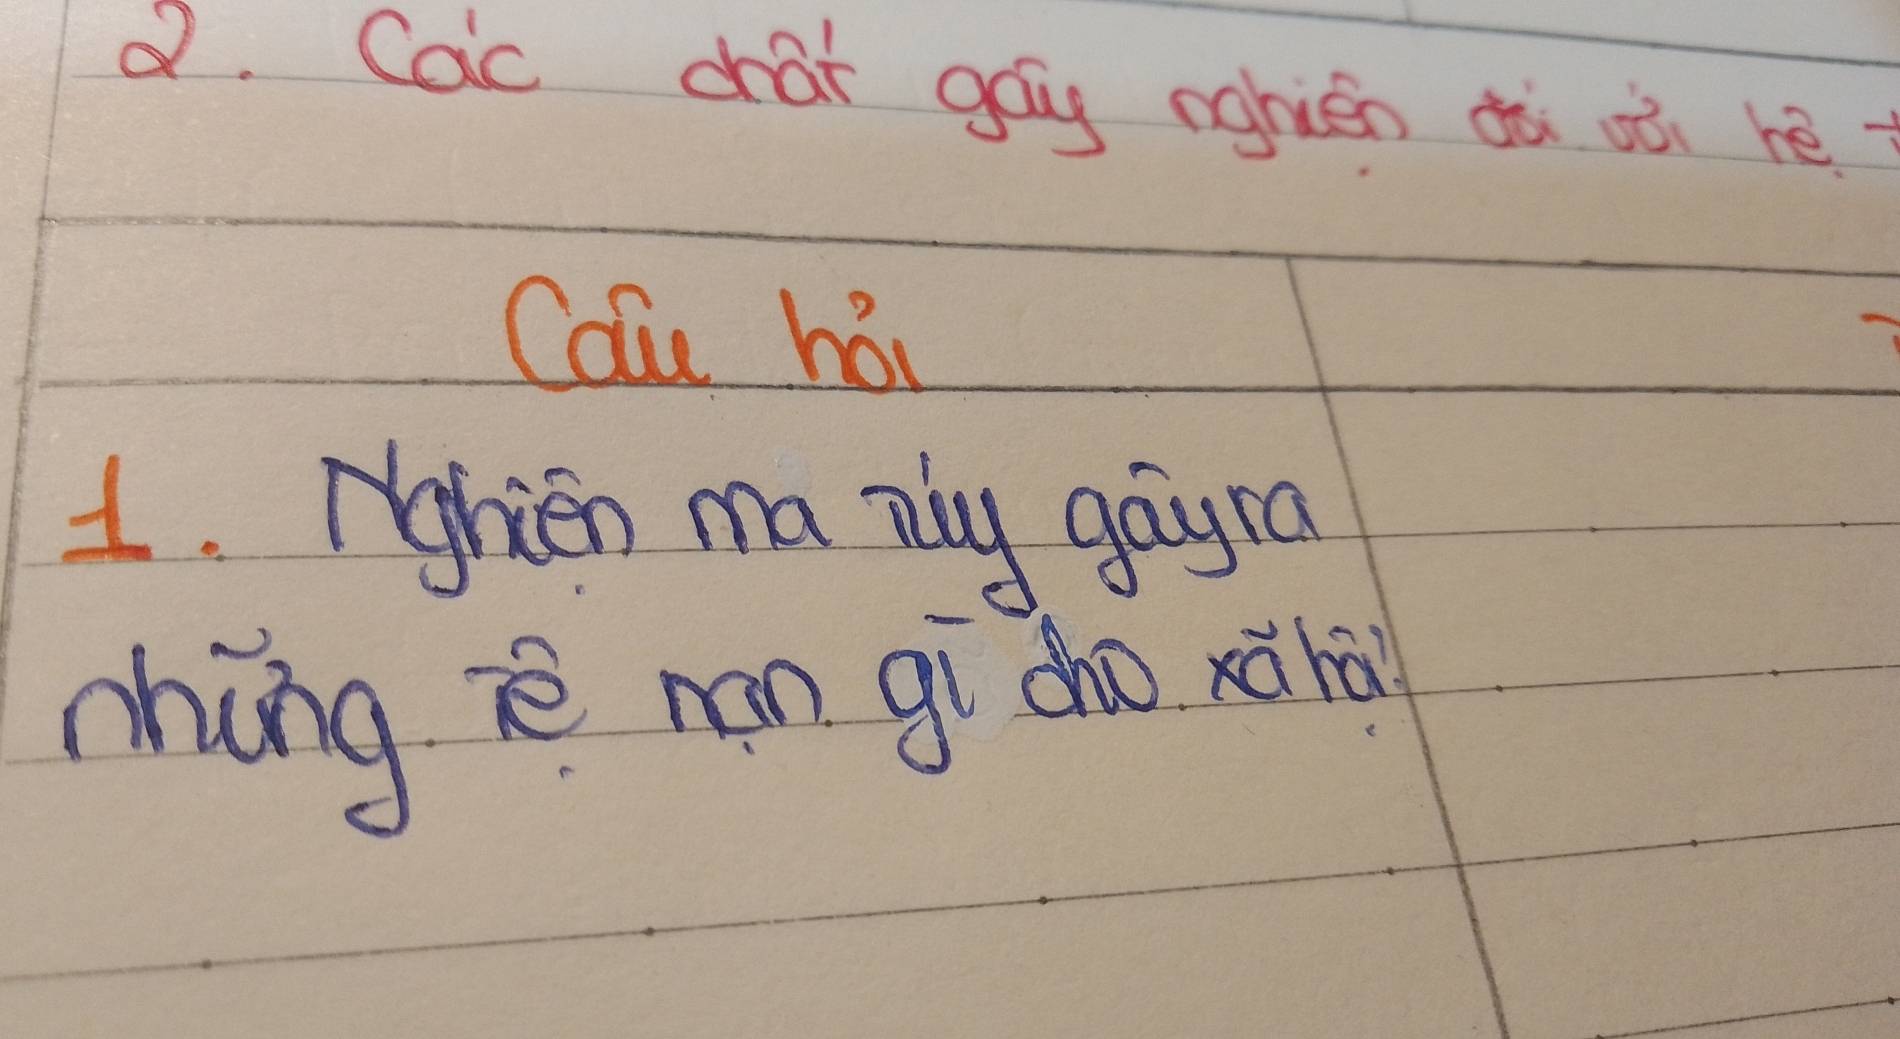 2. Các chất gây nghiện đối với hệ
Câu hỏi
1. Nghiện ma túy gây ra
những tệ nạn gì cho xã hội?